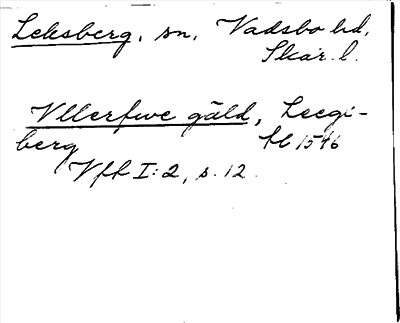 Leksberg, sn, Vadsbo hd,
Skar. l.
Vllerfwe gäld, Leegi-
berg hl 1546
Vfh I:2, s. 12.